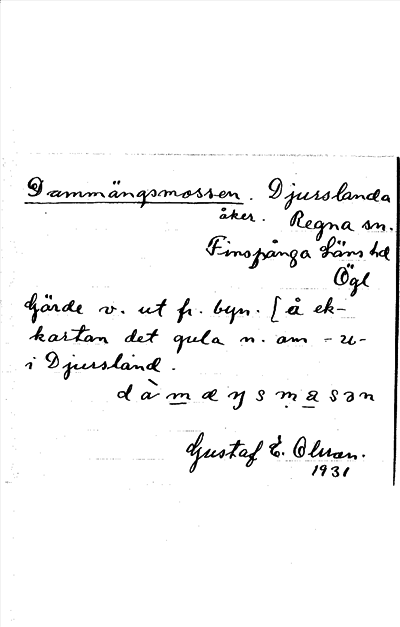 Dammängsmossen. Djurslanda
åker. Regna sn.
Finspånga läns hd
Ögl
Gärde v. ut fr. byn. [å ek-
kartan det gula n. om -u-
i Djursland.
Gustaf E. Olsson.
1931